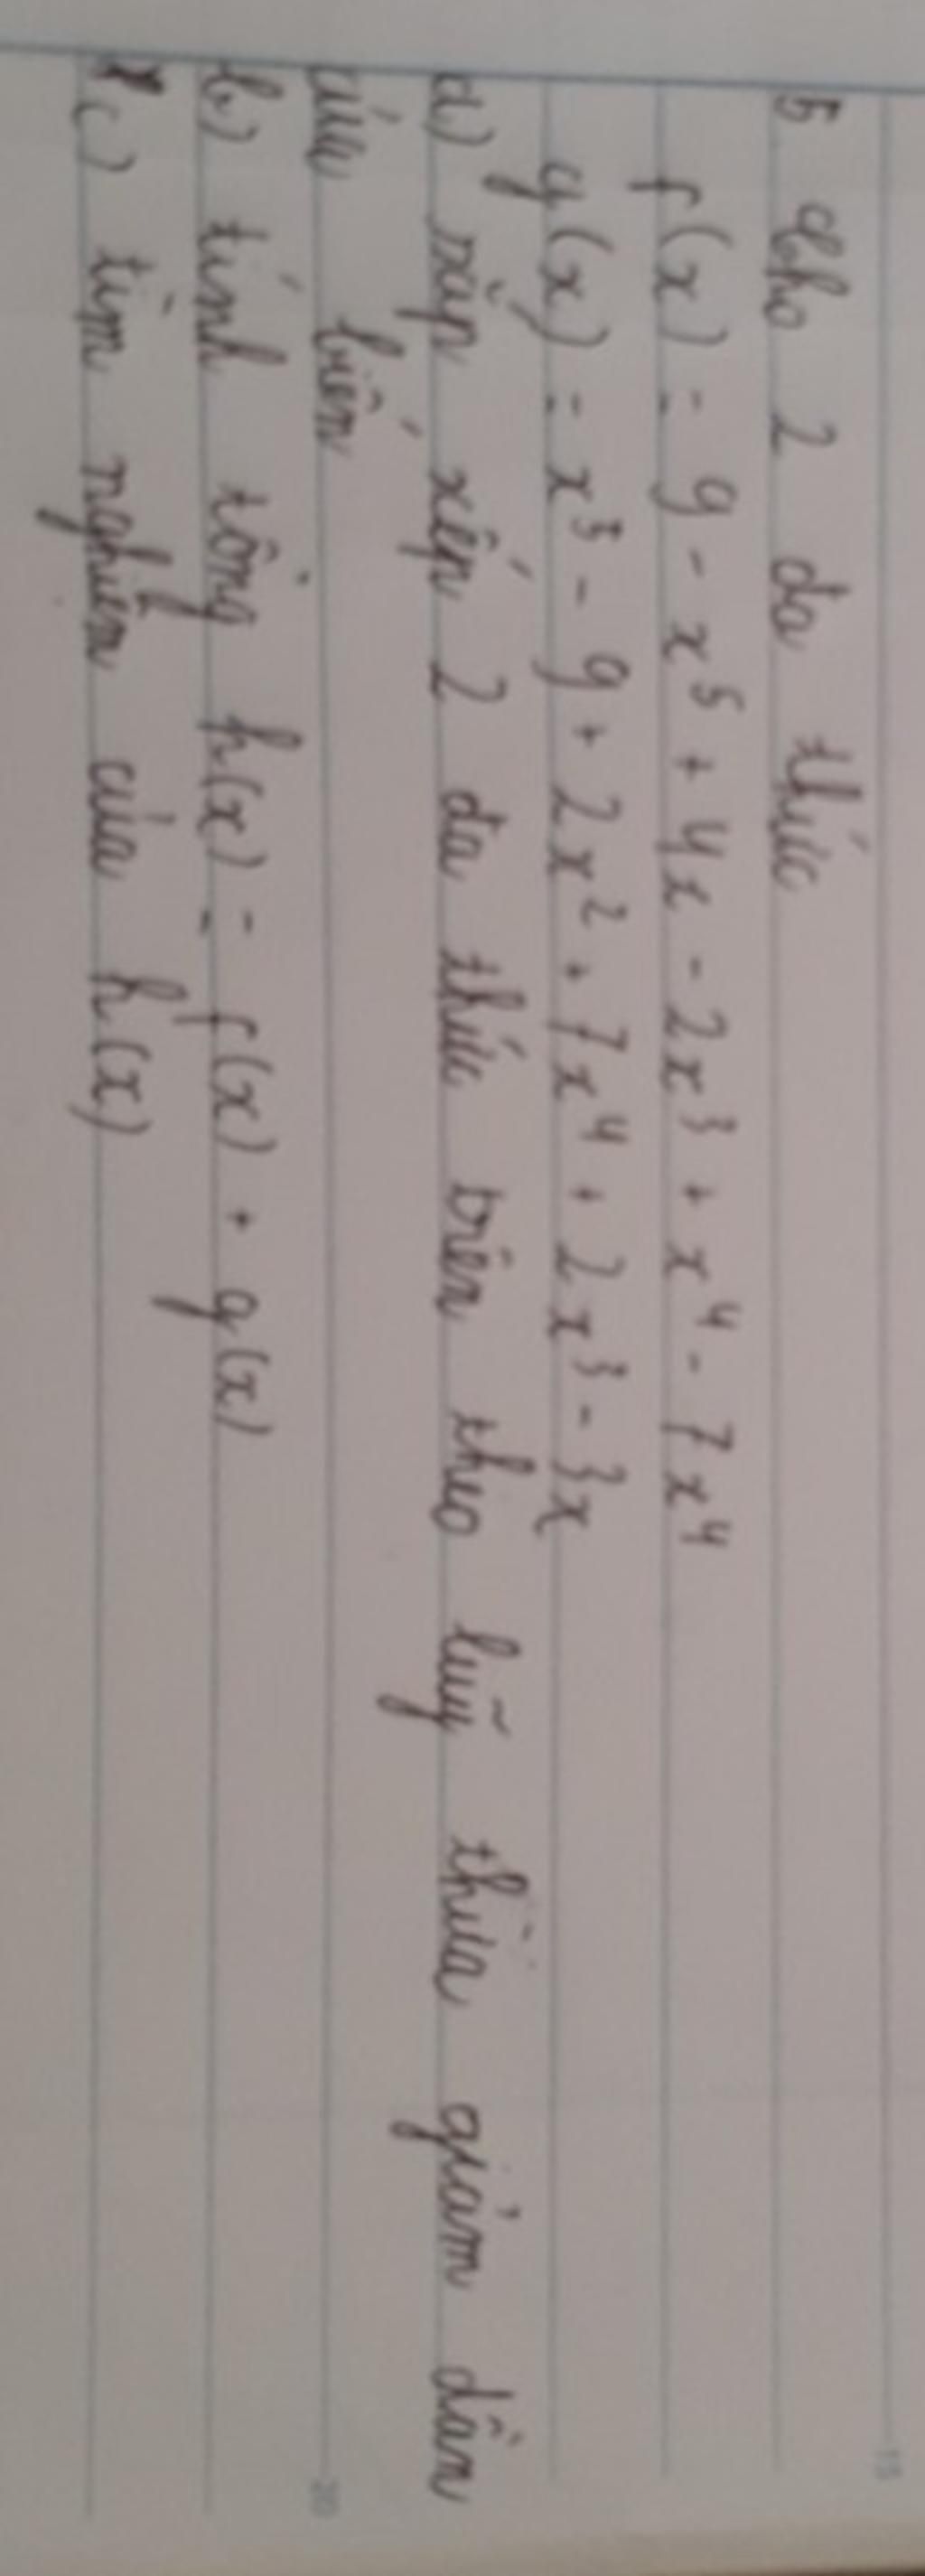 5 cho 2 đa thức
f(x) = 9 - x⁵ + 4x - 2x³ + x⁴ - 7x⁴
g(x) = x⁵ - 9 + 2x² + 7x⁴ + 2x³ - 3x
a) sắp xếp 2 đa thức trên theo luỹ thừa giảm dần
của biến
b) tính tổng h(x) = f(x) + g(x)
c) tìm nghiệm của h(x)
15
20